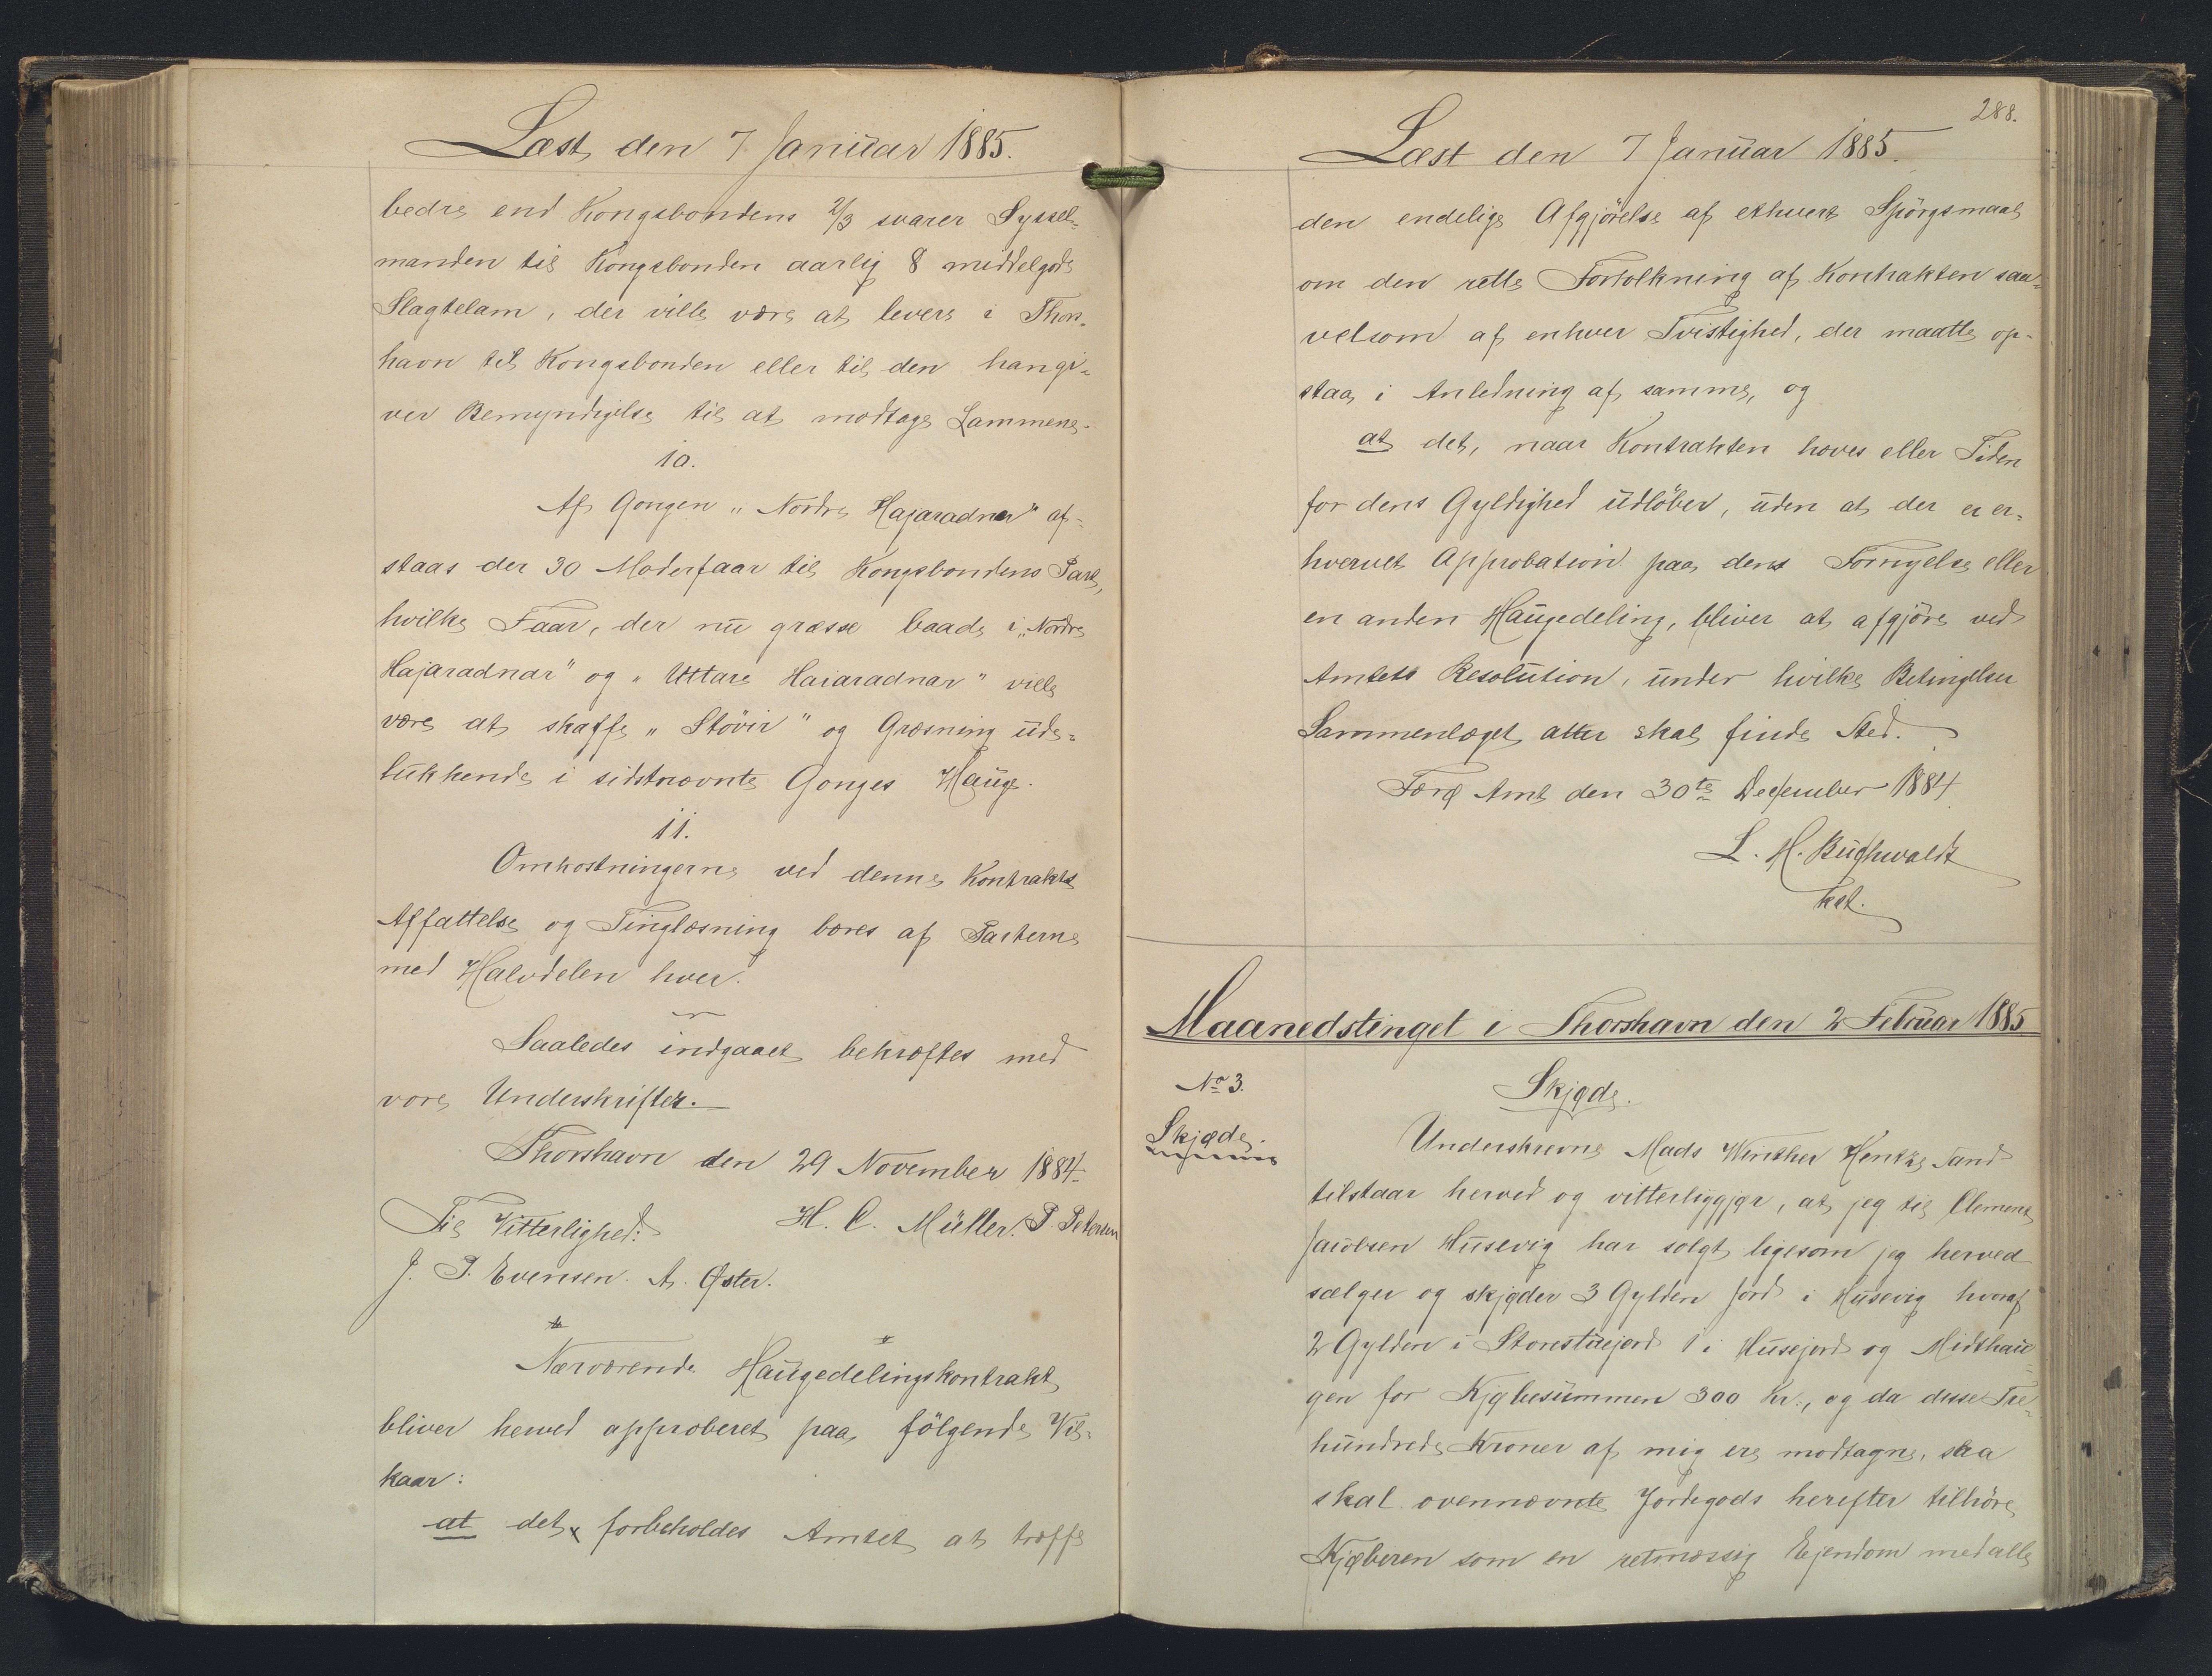 Læst den 7 Januar 1885.
bedre end Kongsbondens 2/3 svarer Syssel-
manden til Kongsbonden aarlig 8 middelgode
Slagtelam, der ville være at levere i Thors-
havn til Kongsbonden eller til den han gi-
ver Bemyndigelse til at modtage Lammene.
10.
Af Gongen "Nordre Hajaradnar" af-
staas der 30 Moderfaar til Kongsbondens Part,
hvilke Faar, der nu græsse baade i "Nordre
Hajaradnar" og "Uttare Haiaradnar" ville
være at skaffe "Stövir" og Græsning ude-
lukkende i sidstnævnte Gonges Hauge.
11.
Omkostningerne ved denne Kontrakts
Affattelse og Tinglæsning bæres af Parterne
med Halvdelen hver.
Saaledes indgaaet bekræftes med
vore Underskrifter.
Thorshavn den 29 November 1884.
Til Vitterlighed: H. C. Müller. P. Petersen
J. P. Evensen. A. Øster.
Nærværende Haugedelingskontrakt
bliver herved approberet paa følgende Vil-
kaar:
at det forbeholdes Amtet at træffe
288.
Læst den 7 Januar 1885.
den endelige Afgjörelse af ethvert Spörgsmaal
om den rette Fortolkning af Kontrakten saa-
velsom af enhver Tvistighed, der maatte op-
staa i Anledning af samme, og
at det, naar Kontrakten hæves eller Tiden
for dens Gyldighed udlöber, uden at der er er-
hvervet Approbation paa dens Fornyelse eller
en anden Haugedeling, bliver at afgjöre ved
Amtets Resolution, under hvilke Betingelser
Sammenlæget atter skal finde Sted.
Færø Amt den 30te December 1884.
L. H. Buchwaldt
kst.
Maanedstinget i Thorshavn den 2 Februar 1885
No 3.
Skjøde.
Skjøde.
Underskrevne Mads Winther Hentze Sand
tilstaar herved og vitterliggjør, at jeg til Clement
Jacobsen Husevig har solgt, ligesom jeg herved
sælger og skjøder 3 Gylden Jord i Husevig hvoraf
2 Gylden i Storestuejord 1 i Husejord og Midthau-
gen for Kjøbesummen 300 Kr., og da disse Tre-
hundrede Kroner af mig ere modtagne, saa
skal ovennævnte Jordegods herefter tilhöre
Kjøberen som en retmæssig Ejendom med alle